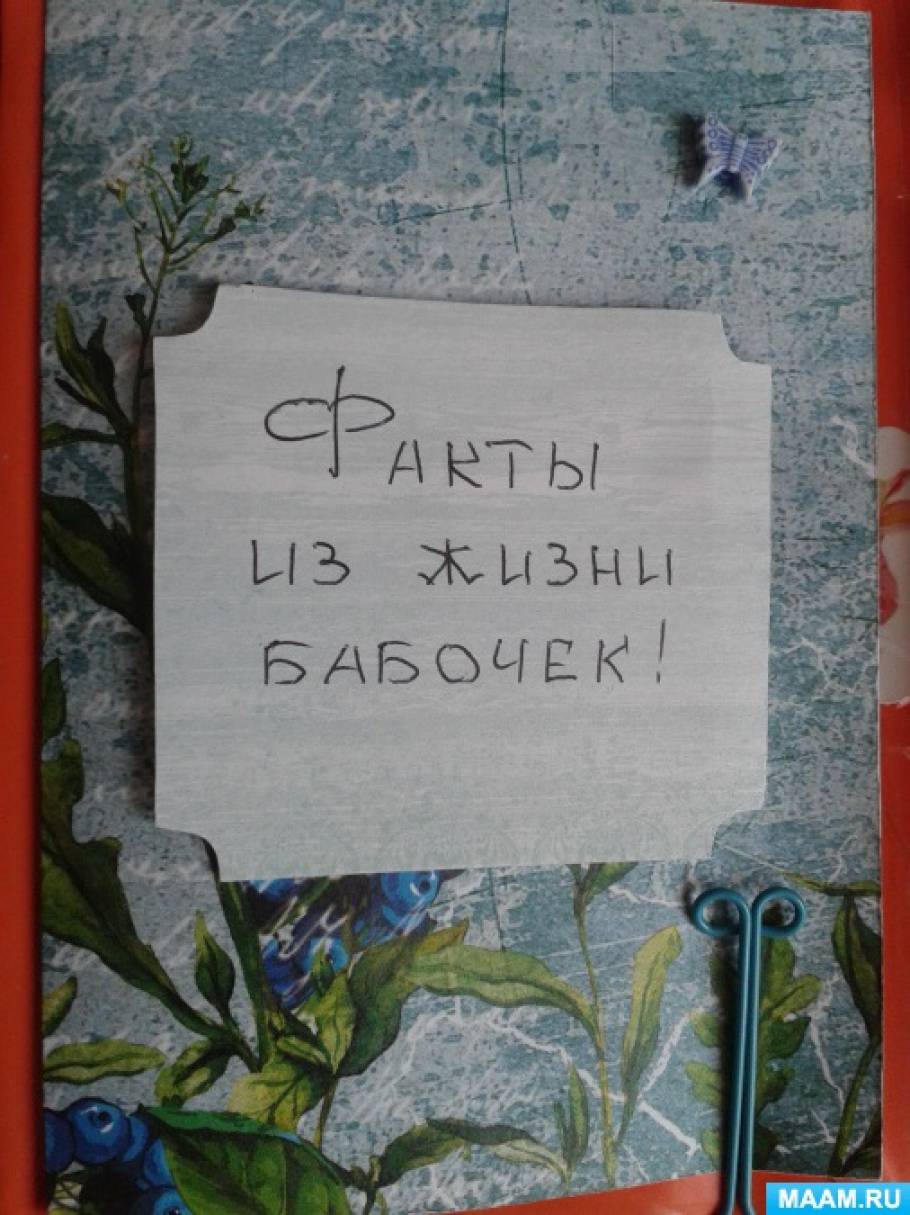 Факты
из жизни
бабочек!
MAAM.RU